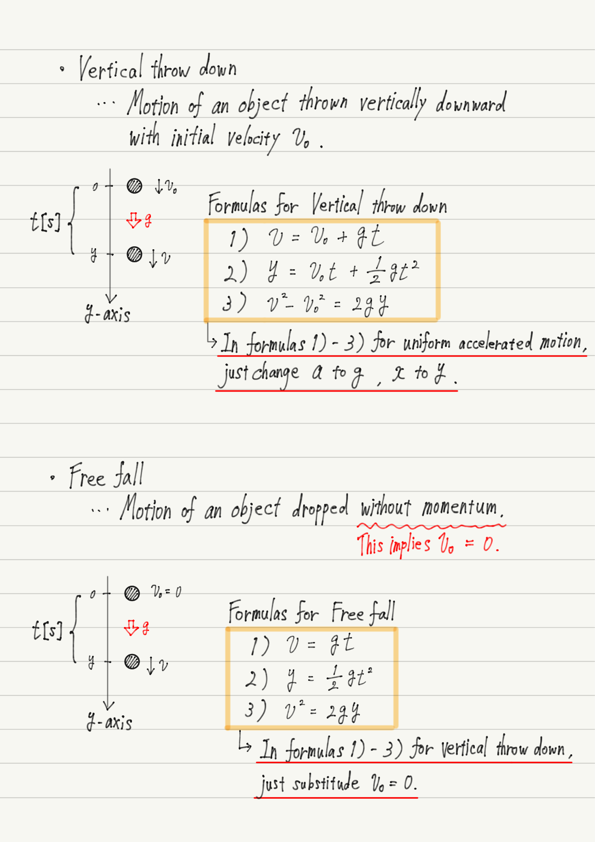 • Vertical throw down
... Motion of an object thrown vertically downward
with initial velocity v₀.
0 ↓v₀
t[s] ⇩g
y ↓v
y-axis
Formulas for Vertical throw down
1) v = v₀ + gt
2) y = v₀t + ½gt²
3) v² - v₀² = 2gy
↳ In formulas 1) - 3) for uniform accelerated motion,
just change a to g, x to y.
• Free fall
... Motion of an object dropped without momentum.
This implies v₀ = 0.
0 v₀=0
t[s] ⇩g
y ↓v
y-axis
Formulas for Free fall
1) v = gt
2) y = ½gt²
3) v² = 2gy
↳ In formulas 1) - 3) for vertical throw down,
just substitude v₀ = 0.